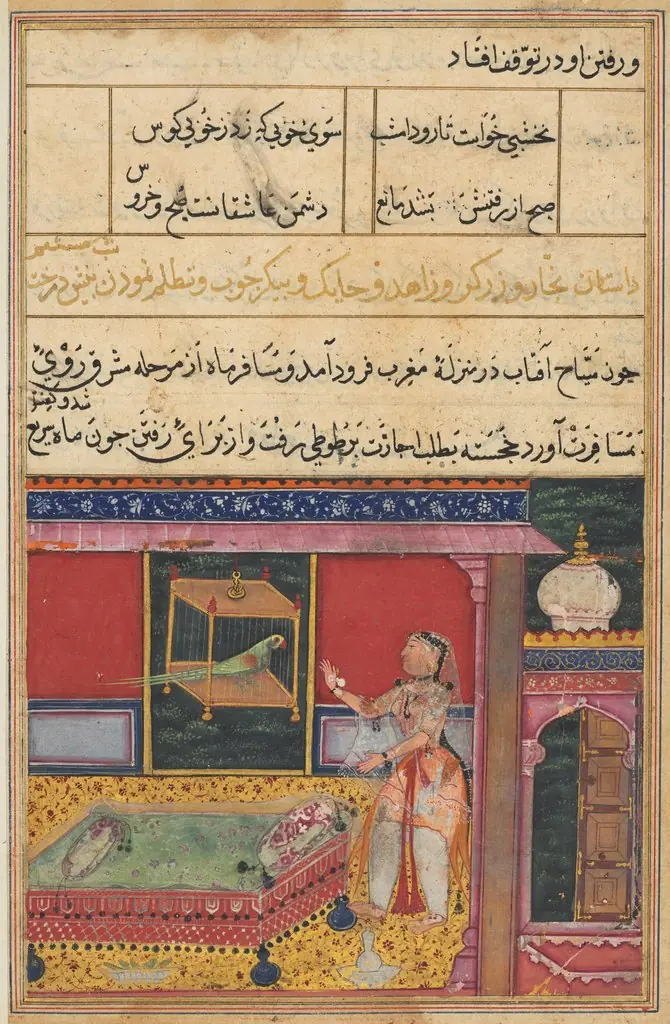 و رفتن او در توقف افتاد
نخشبی خواست تا رود امشب سوی خوبی که زد ز خوبی کوس
صبح از رفتنش بشد مانع دشمن عاشقانست صبح و خروس
داستان نجار و زرکر و زاهد و حایک و پیکر چوب و تظلم نمودن پیش درخت
چون سیاح آفتاب در منزلهٔ مغرب فرود آمد و مسافر ماه از مرحله مشرق روی
بمسافرت آورد خجسته بطلب اجازت بر طوطی رفت و از برای رفتن چون ماه سریع